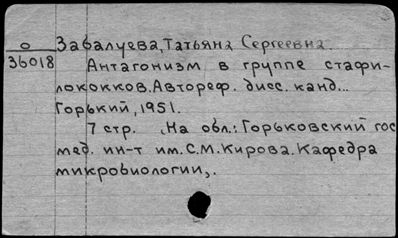 о Забалуева, Татьяна Сергеевна
36018 Антагонизм в группе стафи-
лококков. Автореф. дисс. канд...
Горький, 1951.
7 стр. На обл.: Горьковский гос
мед. ин-т им. С.М. Кирова. Кафедра
микробиологии,.